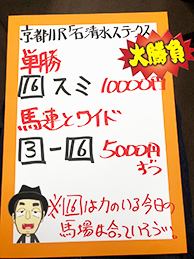 京都11R「石清水ステークス」
大勝負
単勝
16 スミ 10000円
馬連とワイド
3-16 5000円
ずつ
※16は力のいる今日の
馬場は合っていそう!!